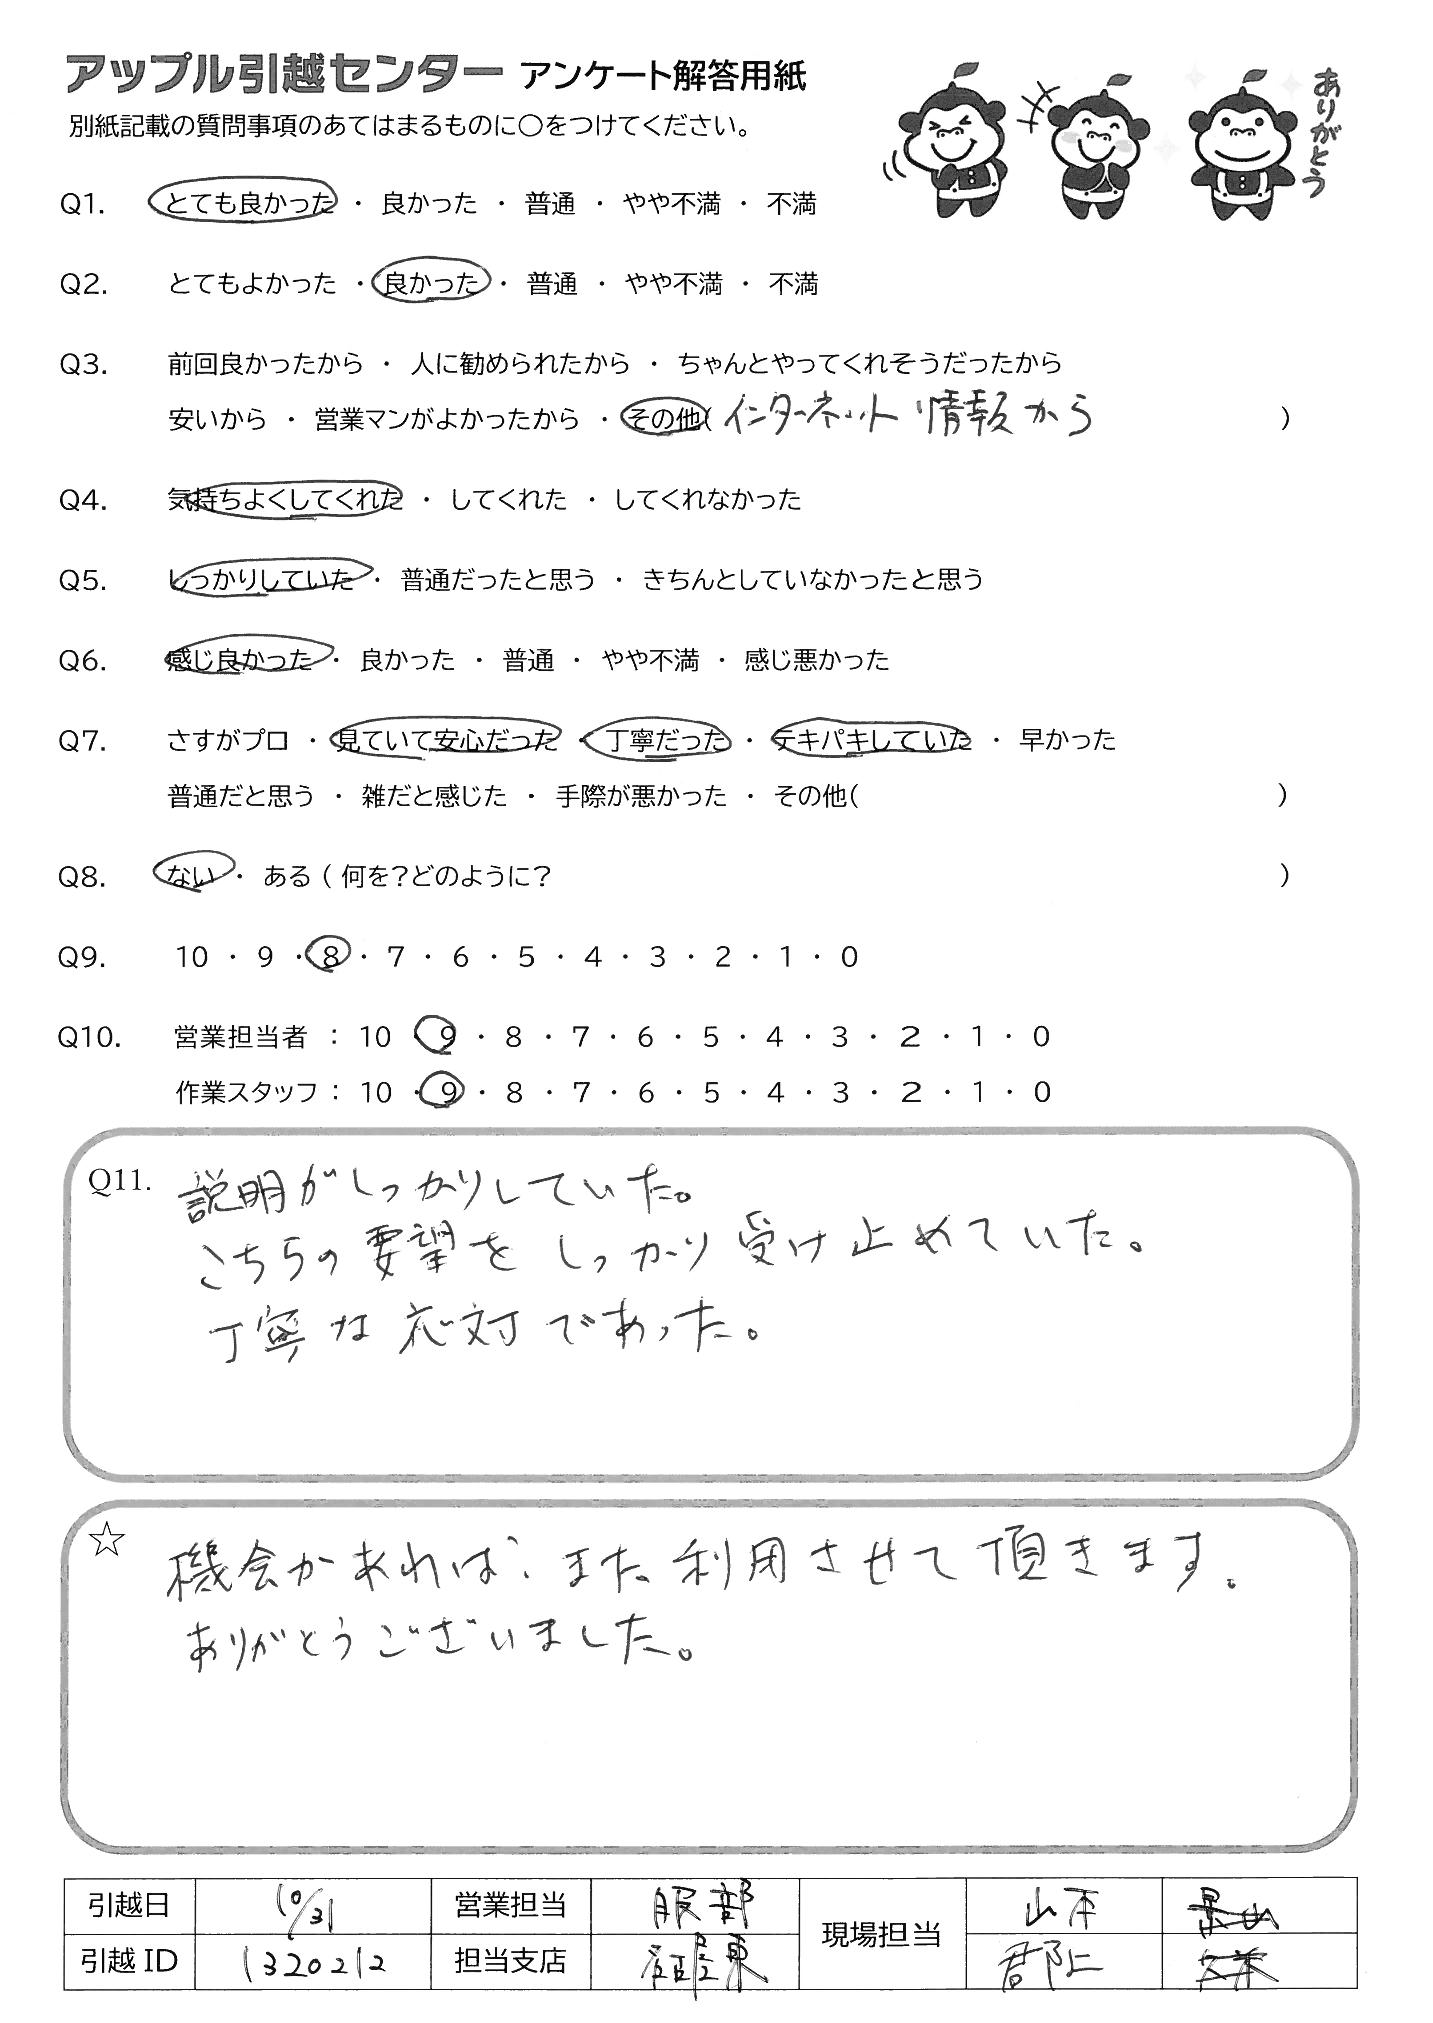 アップル引越センター アンケート解答用紙
別紙記載の質問事項のあてはまるものに○をつけてください。
ありがとう
Q1. とても良かった ・ 良かった ・ 普通 ・ やや不満 ・ 不満
Q2. とてもよかった ・ 良かった ・ 普通 ・ やや不満 ・ 不満
Q3. 前回良かったから ・ 人に勧められたから ・ ちゃんとやってくれそうだったから
安いから ・ 営業マンがよかったから ・ その他( インターネット情報から )
Q4. 気持ちよくしてくれた ・ してくれた ・ してくれなかった
Q5. しっかりしていた ・ 普通だったと思う ・ きちんとしていなかったと思う
Q6. 感じ良かった ・ 良かった ・ 普通 ・ やや不満 ・ 感じ悪かった
Q7. さすがプロ ・ 見ていて安心だった ・ 丁寧だった ・ テキパキしていた ・ 早かった
普通だと思う ・ 雑だと感じた ・ 手際が悪かった ・ その他( )
Q8. ない ・ ある ( 何を?どのように? )
Q9. 10 ・ 9 ・ 8 ・ 7 ・ 6 ・ 5 ・ 4 ・ 3 ・ 2 ・ 1 ・ 0
Q10. 営業担当者 : 10 ・ 9 ・ 8 ・ 7 ・ 6 ・ 5 ・ 4 ・ 3 ・ 2 ・ 1 ・ 0
作業スタッフ : 10 ・ 9 ・ 8 ・ 7 ・ 6 ・ 5 ・ 4 ・ 3 ・ 2 ・ 1 ・ 0
Q11. 説明がしっかりしていた。
こちらの要望をしっかり受け止めていた。
丁寧な応対であった。
☆ 機会があれば、また利用させて頂きます。
ありがとうございました。
引越日 10/31 営業担当 服部 現場担当 山本
引越ID 1320212 担当支店 郡上